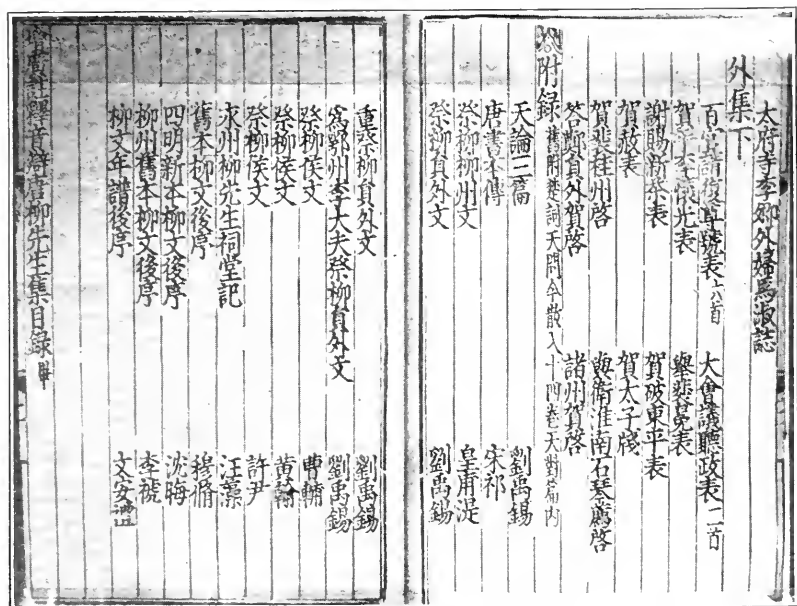 太府寺李卿外婦馬淑誌
外集下
百寮請復尊號表六首 大會議聽政表二首
賀平李懷光表 舉裴冕表
謝賜新茶表 賀破東平表
賀赦表 賀太子牋
賀裴桂州啓 與衛淮南石琴薦啓
答鄭員外賀啓 諸州賀啓
附録 舊附楚詞天問今散入十四卷天對篇内
天論三篇 劉禹錫
唐書本傳 宋祁
祭柳柳州文 皇甫湜
祭柳員外文 劉禹錫
重祭柳員外文 劉禹錫
爲鄂州李大夫祭柳員外文 劉禹錫
祭柳侯文 曹輔
祭柳侯文 黄翰
祭柳侯文 許尹
永州柳先生祠堂記 汪藻
舊本柳文後序 穆脩
四明新本柳文後序 沈晦
柳州舊本柳文後序 李褫
柳文年譜後序 文安禮
註釋音辯唐柳先生集目録畢